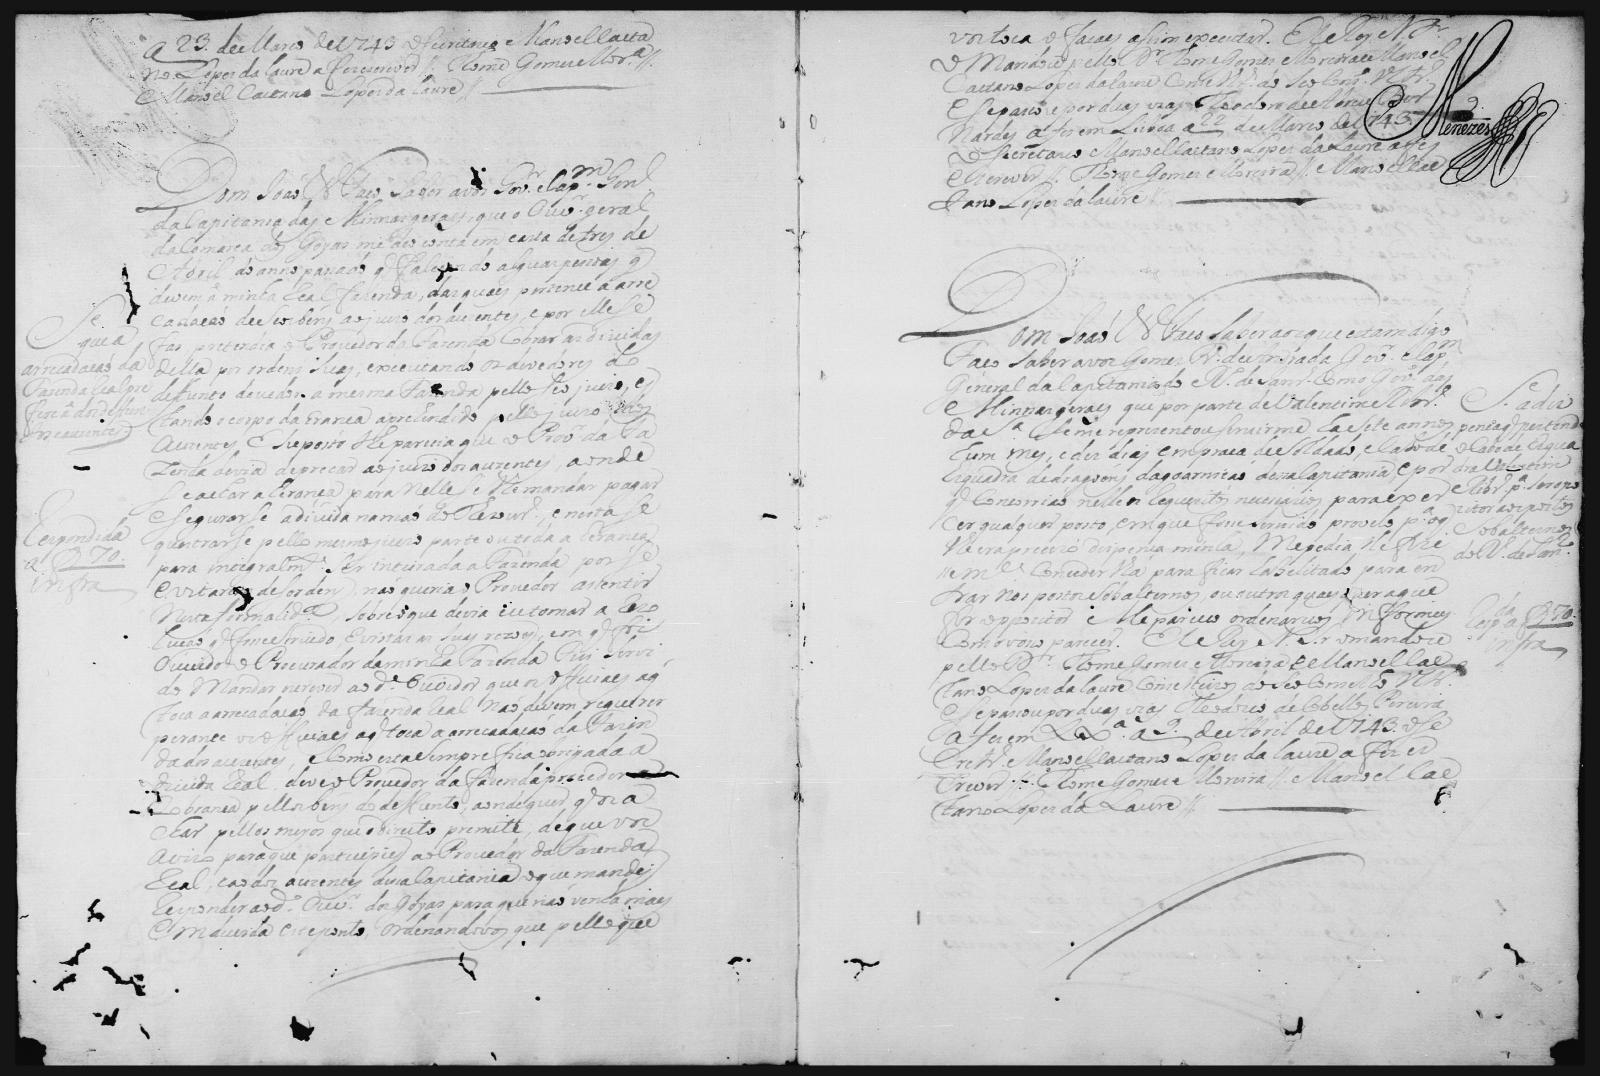 a 23. de Março de 1743 o Secretario Manoel Caeta
no Lopes da Laure a fes escrever //. Thome Gomes Mor.ª //.
Manoel Caetano Lopes da Laure //
Dom Joaõ &ª Faço saber a vos Gov.or e Cap.m Genl
da Capitania das Minnas geraes, que o Ouv.or geral
da Comarca dos Goyas me deo conta em carta de tres de
Abril do anno passado q falecendo algũas pessoas q
devem á minha Real fazenda, das quaes pertence a arre
cadaçaõ de seos bens ao juizo dos auzentes, e por elle se
faz pretende o Provedor da Fazenda cobrar as dividas
della por ordens suas, executando os devedores do
defunto devedor a mesma Fazenda pello seo juizo, es
tando o corpo da erança aprehendido pello juizo dos
Auzentes e suposto lhe parecia que o Prov.or da Fa
zenda devia deprecar ao juizo dos auzentes, aonde
se achar a erança para nelle se lhe mandar pagar
e segurarse a divida na maõ do Thezour.º, e nesta se
quetrarse pello mesmo juizo parte ou toda a erança
para integralm.te ser inteirada a Fazenda por se
evitarem desordens, naõ queria o Provedor assentir
nesta formalid.e, sobre o que devia eu tomar a rezo
luçaõ q fosse servido e vistas as suas rezoens, em q foi
ouvido o Procurador de minha Fazenda Fuy servi
do Mandar escrever ao d.º Ouvidor que os officiaes a q
toca a arrecadaçaõ da fazenda Real naõ devem requerer
perante os officiaes a q toca a arrecadaçaõ da Fazen
da dos auzentes, e como esta sempre fica obrigada a
divida Real, deve o Provedor da fazenda proceder a
cobrança pellos bens do defunto, aonde quer q os a
char pellos meyos que o direito premite, de que vos
avizo para que participeis ao Provedor da Fazenda
Real, e ao dos auzentes dessa Capitania o que mandey
Responder ao d.º Ouv.or dos Goyas para que naõ venha mais
em duvida este ponto, ordenandovos que pello que
Se
que a
arrecadaçaõ da
Fazenda Real pre
fere á dos defun
tos e auzentes
Respondida
a f 70.
infra
vos toca o façaes assim executar. El Rey N. Sr.
o Mandou pello Dr. Thome Gomes Moreira e Manoel
Caetano Lopes da Laure Conselhr.os do seo Cons.º Ultr.
e se passou por duas vias Theodoro de Abreu Ber
nardes a fes em Lisboa a 22 de Março de 1743
o Secretario Manoel Caetano Lopes da Laure a fes
escrever //. Thome Gomes Moreira //. Manoel Cae
tano Lopes da Laure //
Menezes
Dom Joaõ &ª Faço saber aos que esta digo
Faço saber a vos Gomes Fr.e de Andrada Gov.or e Cap.m
General da Capitania do R.º de Janr.º Com o Gov.º das
Minnas geraes que por parte de Valentim Ribr.º
da S.ª se me representou servirme ha sete annos
hum mes, e dez dias em praça de Soldado, e Cabo de
Esquadra de dragoens da goarniçaõ dessa Capitania e por
q concorriaõ nelle os requezitos necessarios para exer
cer qualquer posto, em que fosse servido provelo p.ª o q
lhe era precizo dispença minha, Me pedia lhe fize
sse m.ce conceder lha para ficar habelitado para en
trar nos postos sobalternos, ou outros quaesquer a que
for oppozitor e Me pareceo ordenarvos Informeis
com o vosso parecer. El Rey N. Sr. o mandou
pello Dr. Thome Gomes Moreira e Manoel Cae
tano Lopes da Laure Conselheiros do seo Conselho Ultr.
e se passou por duas vias Theodosio de Cobellos Pereira
a fes em Lx.ª a 9. de Abril de 1743. o Se
cretr.º Manoel Caetano Lopes da Laure a fes es
crever //. Thome Gomes Moreira //. Manoel Cae
tano Lopes da Laure //
S.e a dis
pença q pertende
o Cabo de Esqua
dra Valentim
Ribr.º p.ª ser opo
zitor aos postos
Sobalternos
do R.º de Janr.º
Resp.da a f 70.
infra